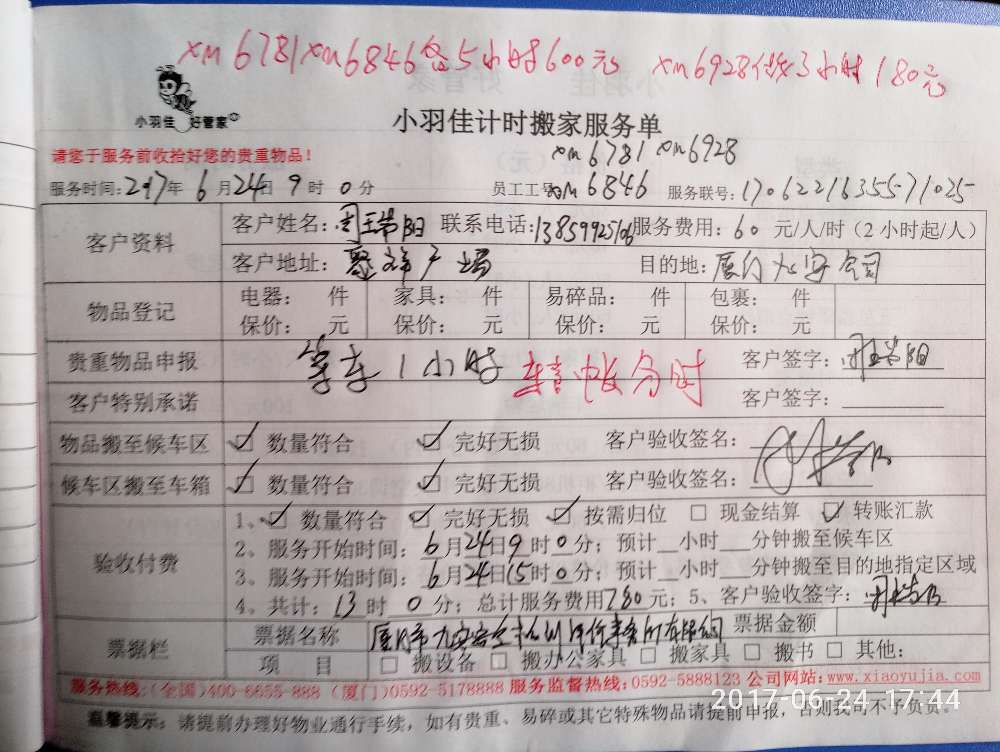 xm6781 xm6846各5小时600元 xm6928做3小时180元
小羽佳 好管家
小羽佳计时搬家服务单
xm6781 xm6928
请您于服务前收拾好您的贵重物品！
服务时间：2017年6月24日9时0分 员工工号：xm6846 服务联号：170622163555-71025
客户资料
客户姓名：周瑞阳 联系电话：13859925106 服务费用：60元/人/时（2小时起/人）
客户地址：聚祥广场 目的地：厦门九安公司
物品登记
电器： 件 家具： 件 易碎品： 件 包裹： 件
保价： 元 保价： 元 保价： 元 保价： 元
贵重物品申报 等车1小时 转帐分时 客户签字：
客户特别承诺 客户签字：
物品搬至候车区 数量符合 完好无损 客户验收签名：
候车区搬至车箱 数量符合 完好无损 客户验收签名：
验收付费
1、数量符合 完好无损 按需归位 现金结算 转账汇款
2、服务开始时间：6月24日9时0分；预计 小时 分钟搬至候车区
3、服务开始时间：6月24日15时0分；预计 小时 分钟搬至目的地指定区域
4、共计：13时0分；总计服务费用780元；5、客户验收签字：
票据栏
票据名称 厦门市九安安全 评价事务所有限公司 票据金额
项目 搬设备 搬办公家具 搬家具 搬书 其他：
服务热线：（全国）400-6655-888（厦门）0592-5178888 服务监督热线：0592-5888123 公司网站：www.xiaoyujia.com
2017-06-24 17:44
温馨提示：请提前办理好物业通行手续，如有贵重、易碎或其它特殊物品请提前申报，否则我司不予负责。